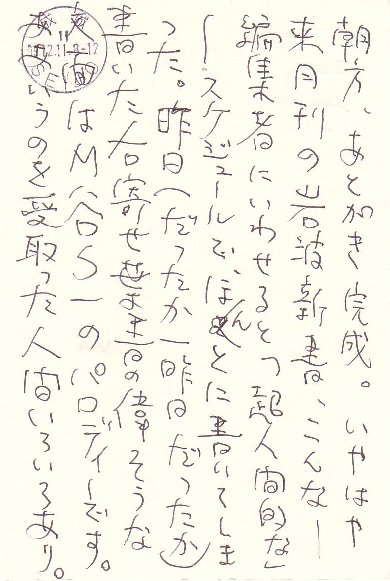 朝方、あとがき完成。いやはや
来月刊の岩波新書、こんなー
編集者にいわせると「超人間的な」
ースケジュールで、ほんとに書いてしま
った。昨日(だったか一昨日だったか)
書いた右寄せ葉書の偉そうな
文面はMからSーのパロディーです。
ああいうのを受取った人間いろいろあり。